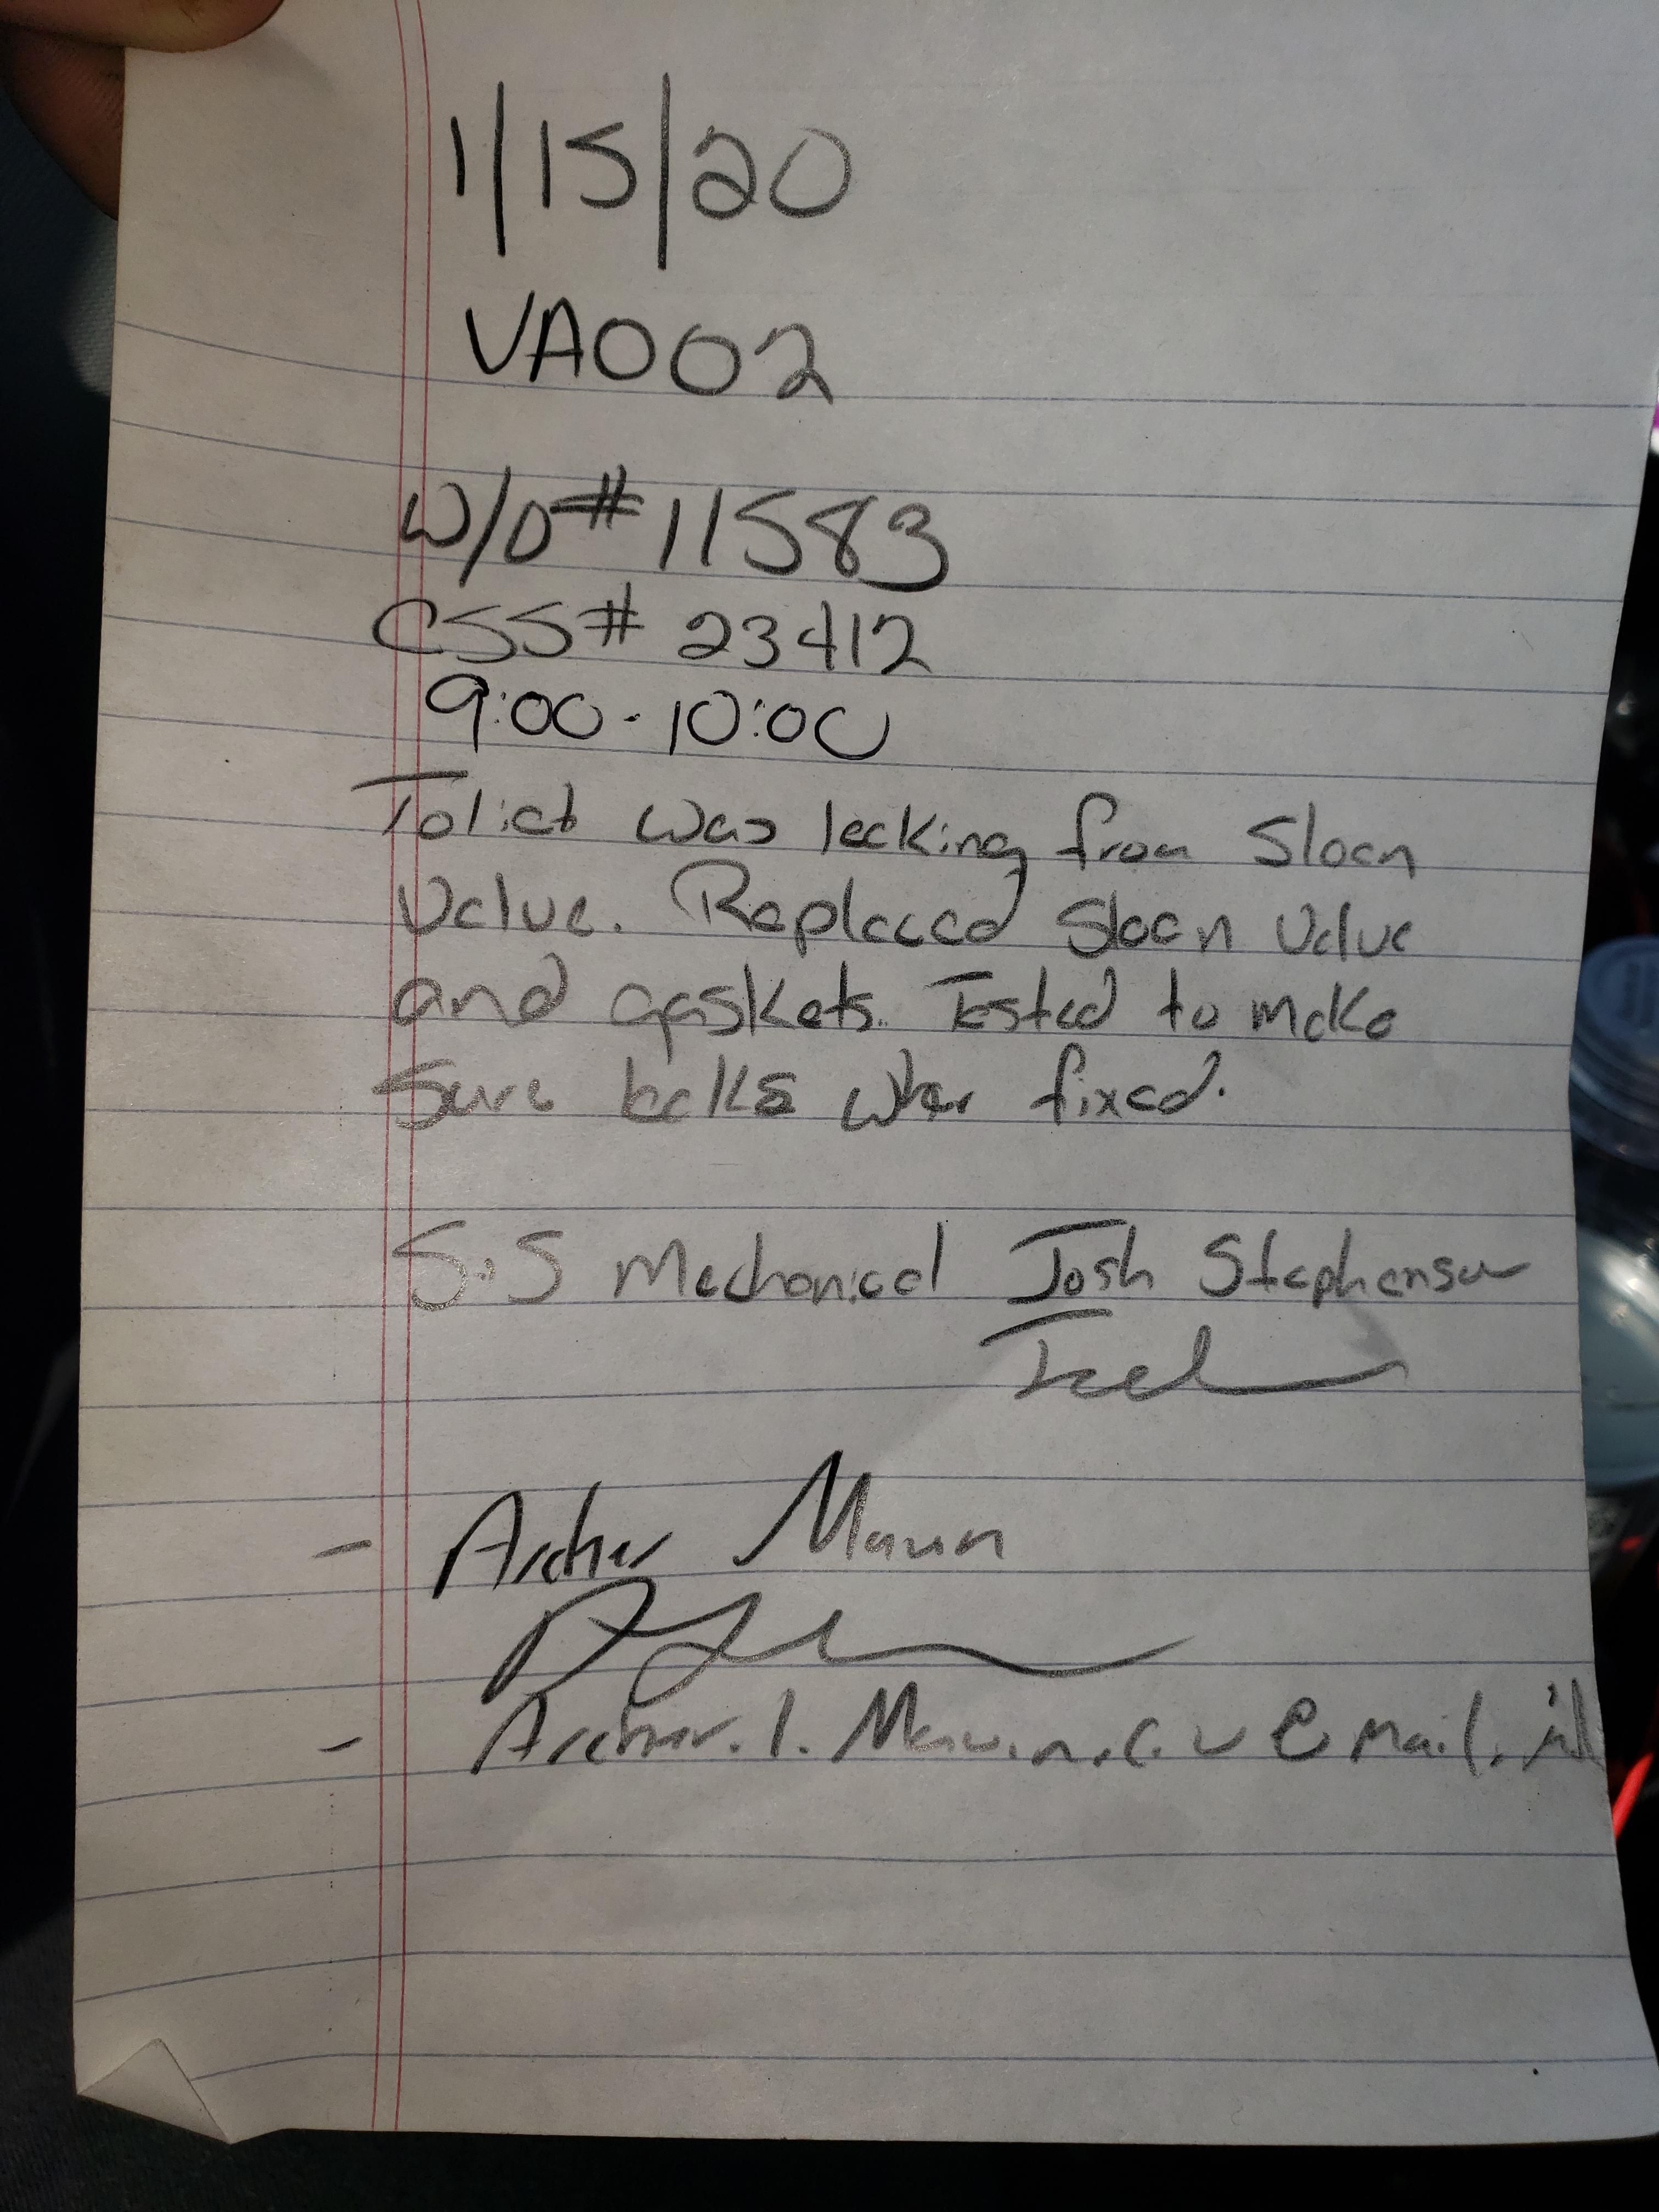 1/15/20
VA002
W/O# 11583
CSS# 23412
9:00 - 10:00
Toliet was leaking from Sloan
Valve. Replaced Sloan Valve
and gaskets. Tested to make
Sure leaks wher fixed.
S.S Mechanical Josh Stephenson
Archer
Archer.